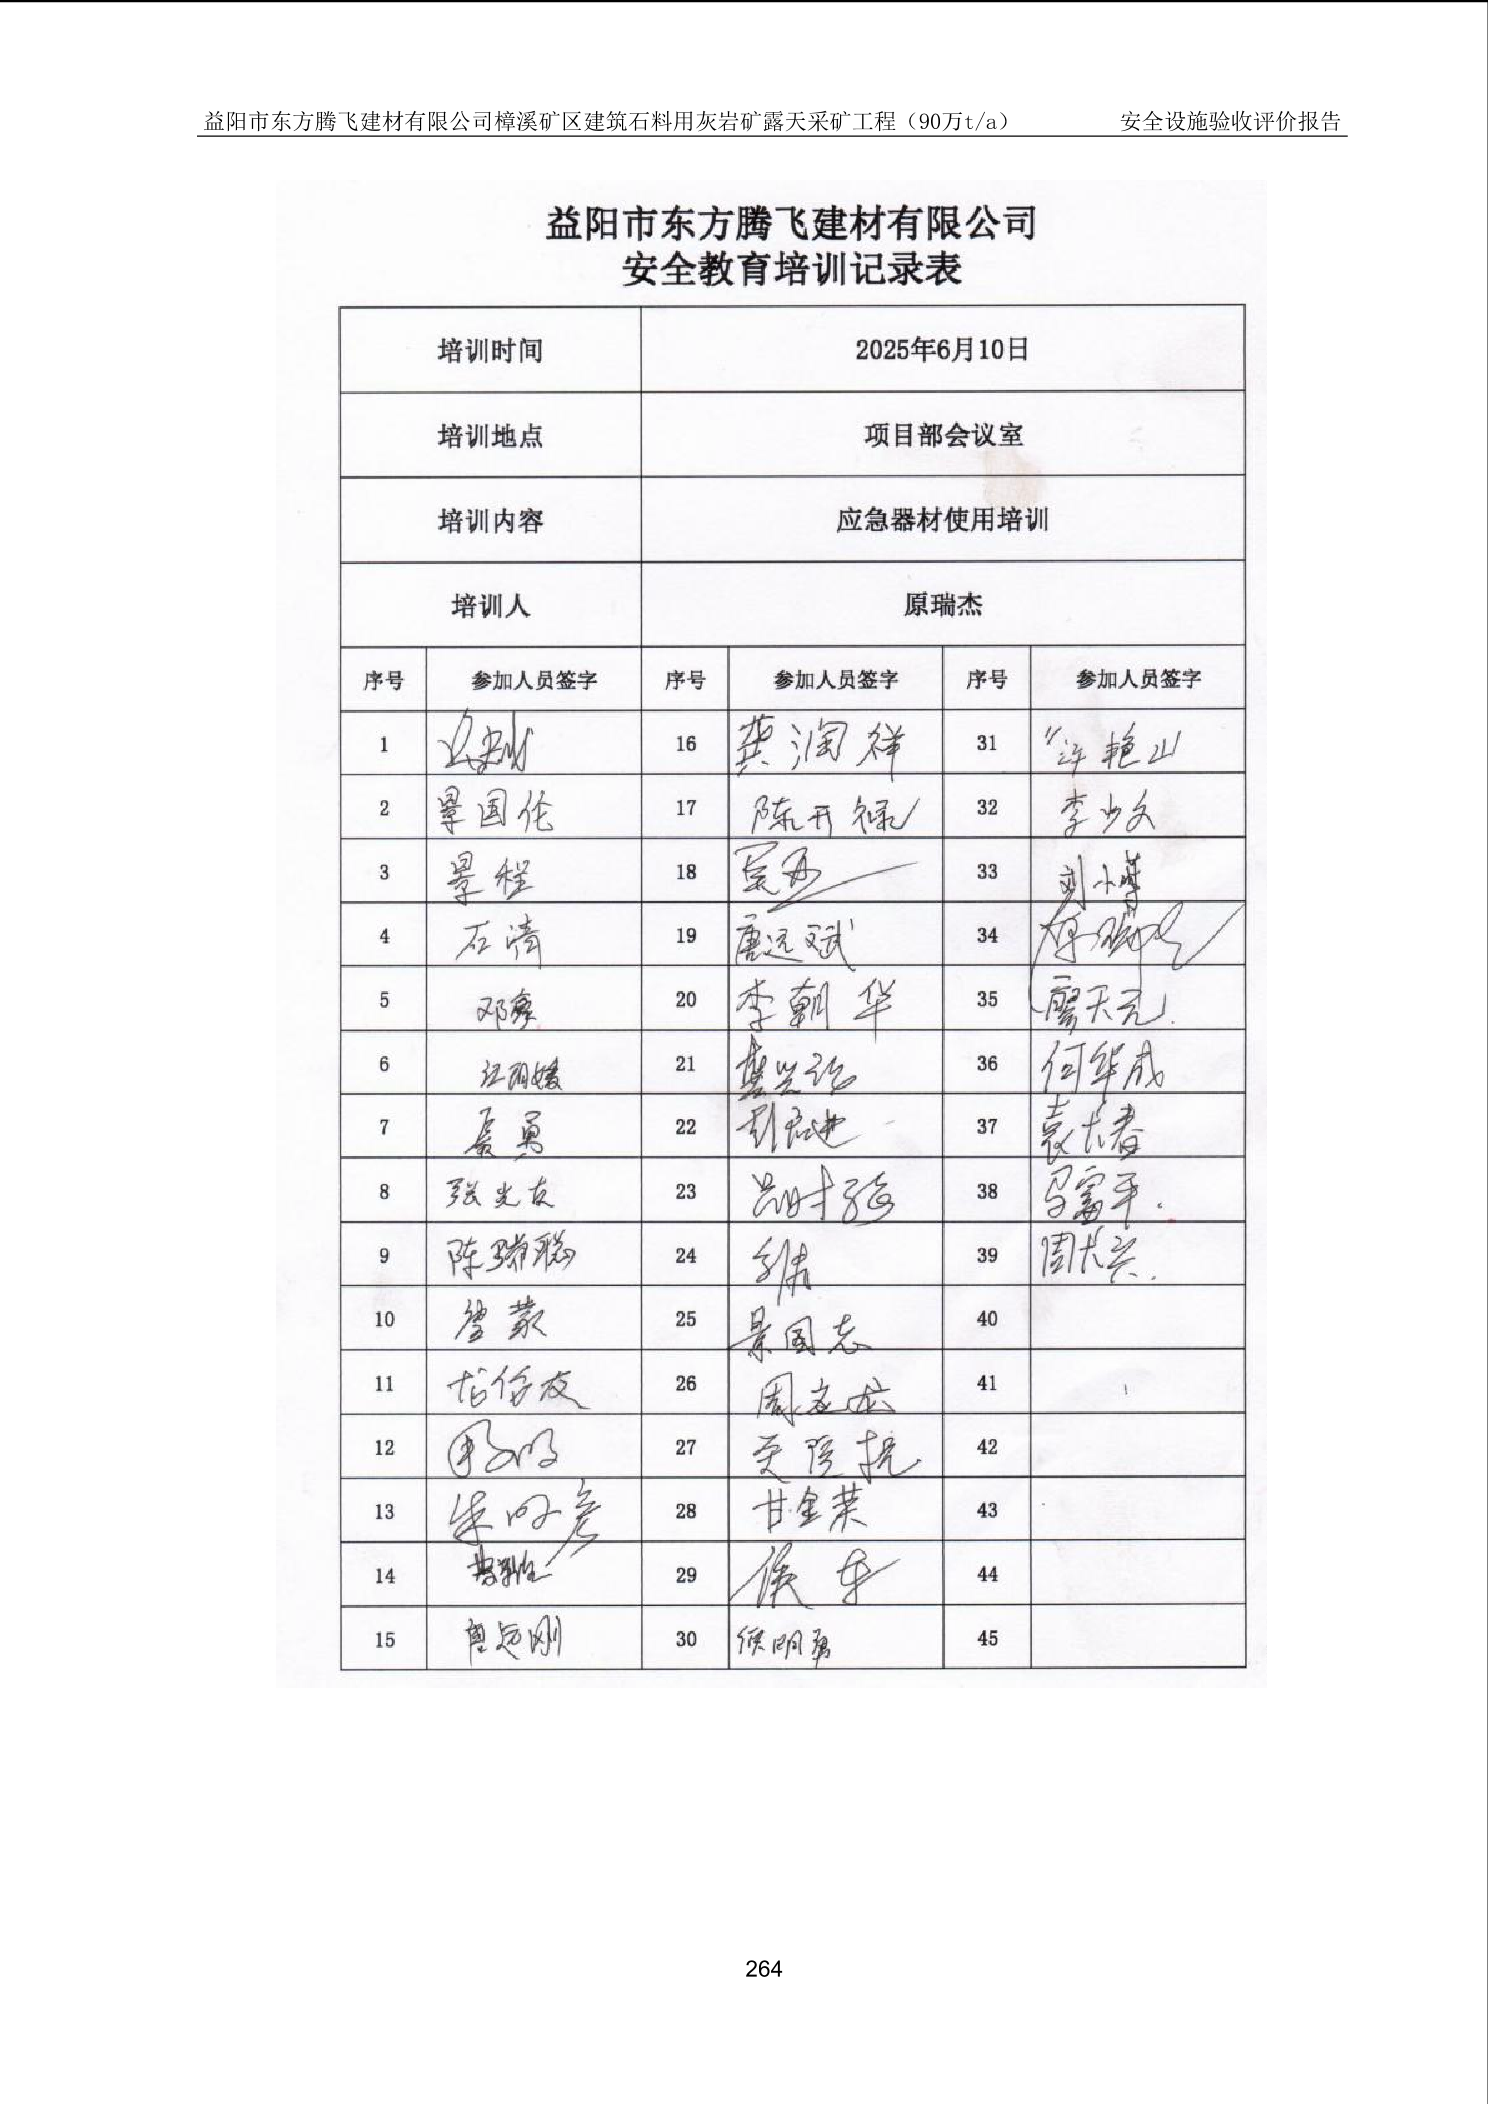 益阳市东方腾飞建材有限公司樟溪矿区建筑石料用灰岩矿露天采矿工程（90万t/a） 安全设施验收评价报告
益阳市东方腾飞建材有限公司
安全教育培训记录表
培训时间 2025年6月10日
培训地点 项目部会议室
培训内容 应急器材使用培训
培训人 原瑞杰
序号 参加人员签字 序号 参加人员签字 序号 参加人员签字
1 16 龚润祥 31 许艳山
2 景国伦 17 陈开禄 32 李少文
3 景程 18 33 刘小苹
4 石清 19 唐远斌 34
5 邓豪 20 李朝华 35 廖天亮
6 江丽媛 21 36 何华成
7 聂勇 22 37 袁长春
8 张光友 23 吕时骏 38 马富平
9 陈瑞聪 24 39 周长兴
10 詹蒙 25 景国志 40
11 26 周立松 41
12 27 42
13 朱明彦 28 甘金荣 43
14 29 侯车 44
15 曹运刚 30 侯明勇 45
264